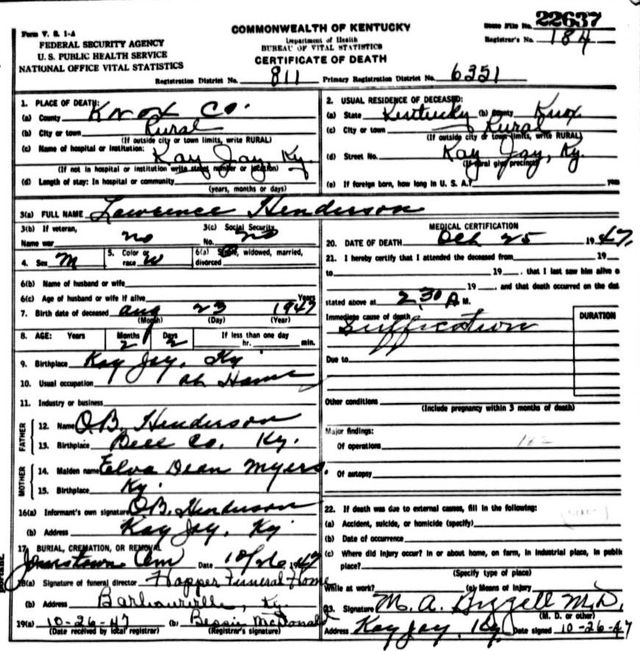 Form V. S. 1-A
FEDERAL SECURITY AGENCY
U. S. PUBLIC HEALTH SERVICE
NATIONAL OFFICE VITAL STATISTICS
COMMONWEALTH OF KENTUCKY
Department of Health
BUREAU OF VITAL STATISTICS
CERTIFICATE OF DEATH
File No. 22637
Registrar's No. 184
Registration District No. 811 Primary Registration District No. 6351
1. PLACE OF DEATH:
(a) County Knox Co.
(b) City or town Rural
(If outside city or town limits, write RURAL)
(c) Name of hospital or institution: Kay Jay, Ky.
(If not in hospital or institution write street number or location)
(d) Length of stay: In hospital or community
(years, months or days)
2. USUAL RESIDENCE OF DECEASED:
(a) State Kentucky (b) County Knox
(c) City or town Rural
(If outside city or town limits, write RURAL)
(d) Street No. Kay Jay, Ky.
(If rural give precinct)
(e) If foreign born, how long in U. S. A? years
3(a) FULL NAME Lawrence Henderson
3(b) If veteran, Name war no
3(c) Social Security No. no
4. Sex M
5. Color or race W
6(a) Single, widowed, married, divorced
6(b) Name of husband or wife
6(c) Age of husband or wife if alive Years
7. Birth date of deceased Aug 23 1947
(Month) (Day) (Year)
8. AGE: Years Months 2 Days 2 If less than one day hr. min.
9. Birthplace Kay Jay, Ky
10. Usual occupation at Home
11. Industry or business
FATHER
12. Name O.B. Henderson
13. Birthplace Bell Co. Ky.
MOTHER
14. Maiden name Elva Dean Myers.
15. Birthplace Ky.
16(a) Informant's own signature O.B. Henderson
(b) Address Kay Jay, Ky
17. BURIAL, CREMATION, OR REMOVAL
Cem Date 10/26, 47
18(a) Signature of funeral director Hopper Funeral Home
(b) Address Barbourville, Ky
19(a) 10-26-47 (b) Bessie McDonald
(Date received by local registrar) (Registrar's signature)
MEDICAL CERTIFICATION
20. DATE OF DEATH Oct 25 1947.
21. I hereby certify that I attended the deceased from 19
to 19 , that I last saw him alive
19 , and that death occurred on the dat
stated above at 2:30 A M.
Immediate cause of death Suffication
DURATION
Due to
Other conditions
(Include pregnancy within 3 months of death)
Major findings:
Of operations
Of autopsy
22. If death was due to external causes, fill in the following:
(a) Accident, suicide, or homicide (specify)
(b) Date of occurrence
(c) Where did injury occur? In or about home, on farm, in industrial place, in public
place?
(Specify type of place)
While at work? (e) Means of Injury
23. Signature M. A. Bizzell M.D.
(M. D. or other)
Address Kay Jay, Ky. Date signed 10-26-47